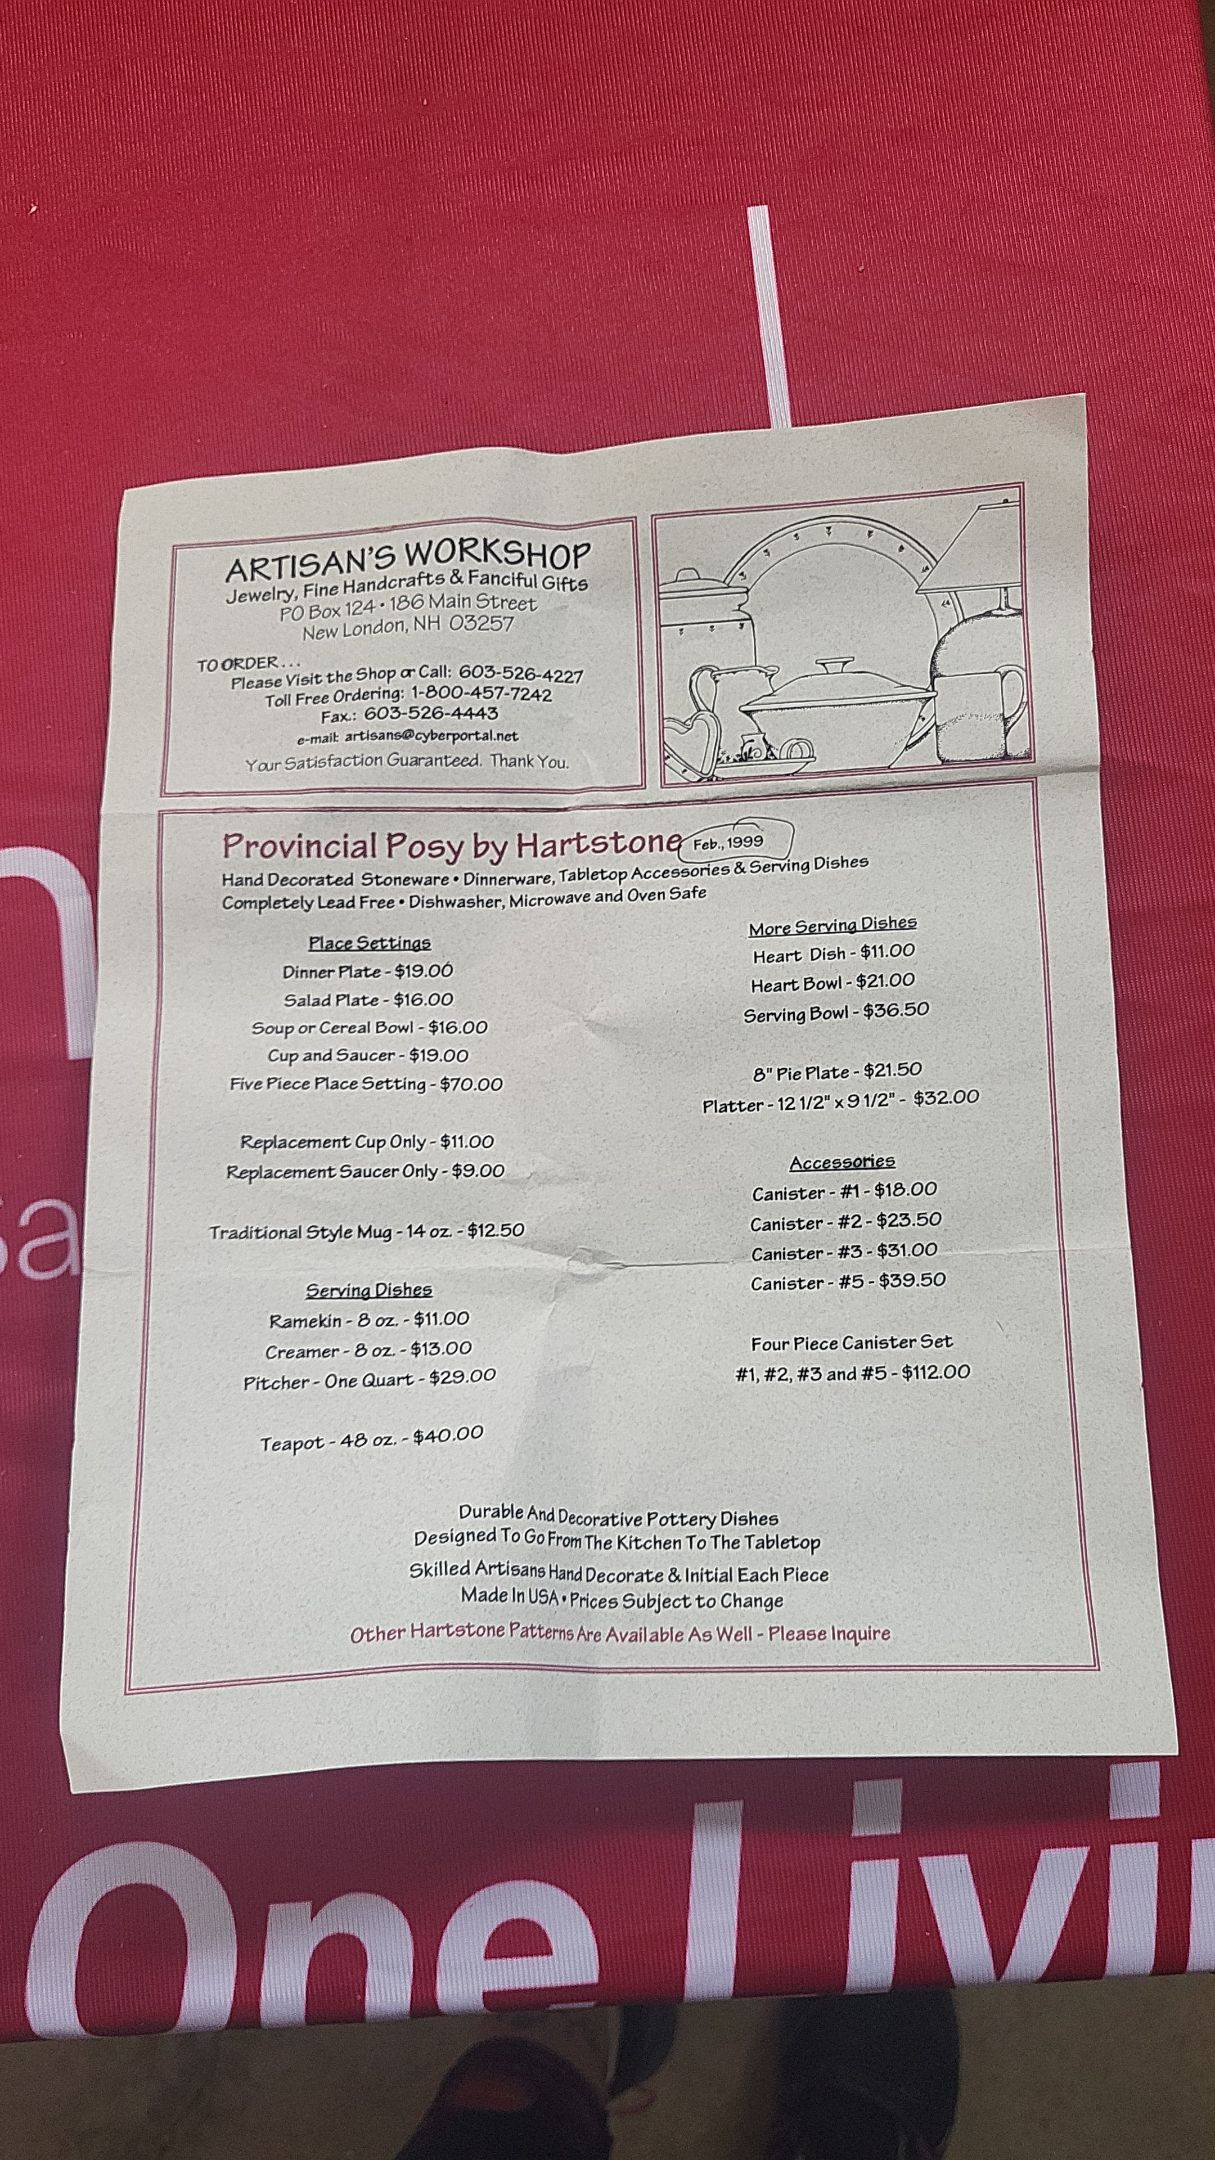 ARTISAN'S WORKSHOP
Jewelry, Fine Handcrafts & Fanciful Gifts
PO Box 124 • 186 Main Street
New London, NH 03257
TO ORDER...
Please Visit the Shop or Call: 603-526-4227
Toll Free Ordering: 1-800-457-7242
Fax.: 603-526-4443
e-mail: artisans@cyberportal.net
Your Satisfaction Guaranteed. Thank You.
Provincial Posy by Hartstone Feb., 1999
Hand Decorated Stoneware • Dinnerware, Tabletop Accessories & Serving Dishes
Completely Lead Free • Dishwasher, Microwave and Oven Safe
Place Settings
Dinner Plate - $19.00
Salad Plate - $16.00
Soup or Cereal Bowl - $16.00
Cup and Saucer - $19.00
Five Piece Place Setting - $70.00
Replacement Cup Only - $11.00
Replacement Saucer Only - $9.00
Traditional Style Mug - 14 oz. - $12.50
Serving Dishes
Ramekin - 8 oz. - $11.00
Creamer - 8 oz. - $13.00
Pitcher - One Quart - $29.00
Teapot - 48 oz. - $40.00
More Serving Dishes
Heart Dish - $11.00
Heart Bowl - $21.00
Serving Bowl - $36.50
8" Pie Plate - $21.50
Platter - 12 1/2" x 9 1/2" - $32.00
Accessories
Canister - #1 - $18.00
Canister - #2 - $23.50
Canister - #3 - $31.00
Canister - #5 - $39.50
Four Piece Canister Set
#1, #2, #3 and #5 - $112.00
Durable And Decorative Pottery Dishes
Designed To Go From The Kitchen To The Tabletop
Skilled Artisans Hand Decorate & Initial Each Piece
Made In USA • Prices Subject to Change
Other Hartstone Patterns Are Available As Well - Please Inquire
One